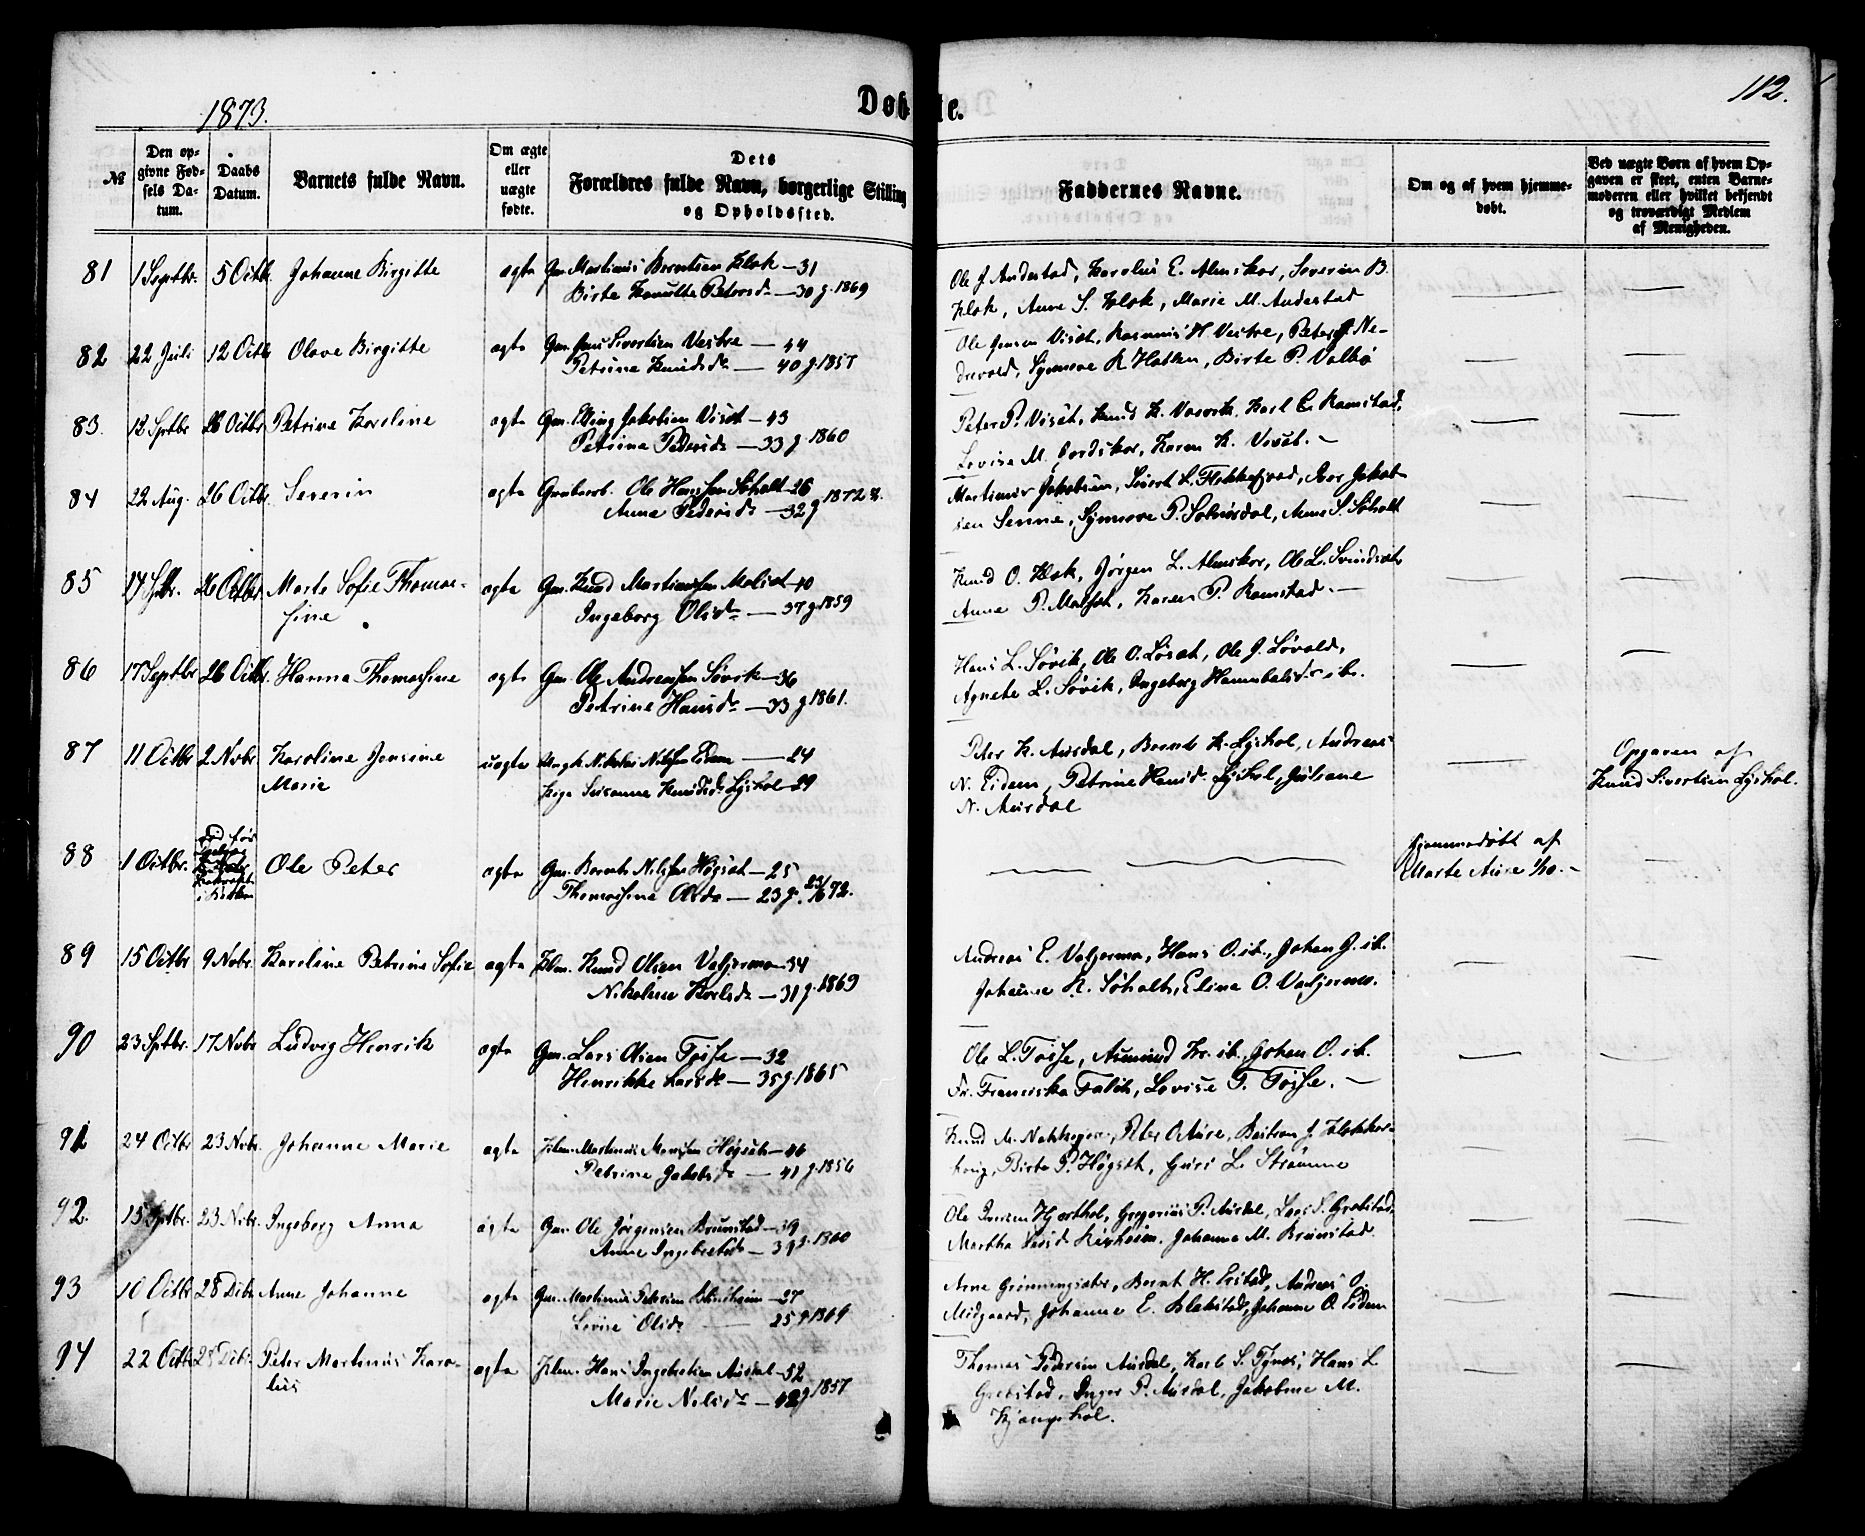 1873.
Døbte.
112.
№
Den op-
givne Fød-
sels Da-
tum.
Daabs
Datum.
Barnets fulde Navn.
Om ægte
eller
uægte
fødte.
Dets
Forældres fulde Navn, borgerlige Stilling
og Opholdssted.
Faddernes Navne.
Om og af hvem hjemme-
døbt.
Ved uægte Børn af hvem Op-
gaven er skeet, enten Barne-
moderen eller hvilket bekjendt
og troværdigt Medlem
af Menigheden.
81 1 Septbr. 5 Octb. Johanne Birgitte ægte Gm. Martinus Berntsen Klok — 31
Birte Knutte Petersd. — 30 g. 1869
Ole J Andestad, Karolus E. Almskor, Severin B.
Klok, Anne S. Klok, Marie M. Andestad
82 22 Juli 12 Octb Olave Birgitte ægte Gm. Jens Sivertsen Vestre — 44
Petrine Knudsd. — 40 g. 1857
Ole Jensen Visæt, Rasmus H Vestre, Peter J. Ne-
drevold, Synnove R Hatlen, Birte P. Valbø
83. 12 Sptbr 26 Octbr Petrine Karoline ægte Gm. Elling Jakobsen Visæt — 43
Petrine Pedersd. — 33 g. 1860
Peter P. Visæt, Knud K. Vasvik, Karl E. Ramstad,
Lovise M. Andskor, Karen K. Visæt. —
84 22 Aug. 26 Octbr. Severin ægte Grubearb. Ole Hansen Søholt — 26
Anne Pedersd. — 32 g 1872
Martinus Jakobsen, Sivert L. Flekkefjord, Iver Jakob-
sen Senne, Synnove P. Solnørdal, Anne S. Søholt
85 14 Sptbr. 26 Octbr. Marte Sofie Thomas-
sine ægte Gm. Knud Martinussen Melsæt — 40
Ingeborg Olsd. — 37 g 1859
Knud O. Klok, Jørgen L. Almskor, Ole L. Svindsæt
Anne P. Melsæt, Karen P. Ramstad. —
86 17 Septbr 26 Octbr. Hanna Thomassine ægte Gm. Ole Andreassen Søvik — 36
Petrine Hansd. — 33 g 1861.
Hans L. Søvik, Ole O. Løsæt, Ole J. Løvold,
Agnete L. Søvik, Ingeborg Hannibalsd. ib.
87 11 Octbr 2 Novbr. Karoline Jensine
Marie uægte Ungk. Nikolai Nilssen Eidem — 24
Pige Susanne Knudsd. Lyshol 29
Peter K. Aursdal, Bernt K. Lyshol, Andreas
N. Eidem, Petrine Hansd. Lyshol, Juliane
N. Aursdal
Opgaven af
Knud Sivertsen Lyshol.
88 1 Octbr. Ole Peter ægte Gm. Bernt Nilssen Høgsæt — 25
Thomassine Olsd. — 23 g. 23/6 72.
hjemmedøbt af
Marte Aure 1/10. —
89 15 Octbr 9 Novbr. Karoline Petrine Sofie ægte Hlm. Knud Olsen Valjerma — 34
Nikoline Karlsd. — 31 g. 1869
Andreas E. Valjerma, Hans O. ib., Johan J. ib.
Johanne K. Søholt, Eline O. Valjermo.
90 23 Sptbr. 17 Novbr Ludvig Henrik ægte Gm. Lars Olsen Tøsse — 32
Henrikke Larsd. — 35 g. 1865
Ole L. Tøsse, Aamund Kr. ib. Johan O. ib.
Fr. Franciska Falch, Lovise T. Tøsse. —
91 24 Octbr 23 Novbr. Johanne Marie ægte Hlm. Martinus Monsen Høgsæt — 46
Petrine Jakobsd. — 41 g. 1856
Knud M. Nakkegjære, Peter O Aure, Bastian J. Klokker-
haug, Birte P. Høgsæt, Guri L. Strømme
92. 15 Sptbr. 23 Novbr. Ingeborg Anna ægte Gm. Ole Jørgensen Brunstad — 39
Anne Ingebretsd. — 39 g. 1860
Ole Iversen Hjorthol, Gregorius P. Aursdal, Lars S. Grebstad
Martha Larsd. Kirkheim, Johanne M. Brunstad.
93 10 Octbr 28 Dcbr. Anne Johanne ægte Gm. Martinus Petersen Blindheim — 27
Lovise Olsd. — 25 g 1869
Arne Grønningsæter, Bernt H. Erstad, Andreas O.
Midgaard, Johanne E. Klokstad, Johanne O. Eidem
94 22 Octbr 28 Dcbr. Peter Martinus Karo-
lus ægte Hlm. Hans Ingebretsen Aursdal — 52
Marie Nilsd. — 42 g 1857
Thomas Pedersen Aursdal, Karl S. Tynes, Hans L
Grebstad, Inger P. Aursdal, Jakobine M.
Kjongshol.